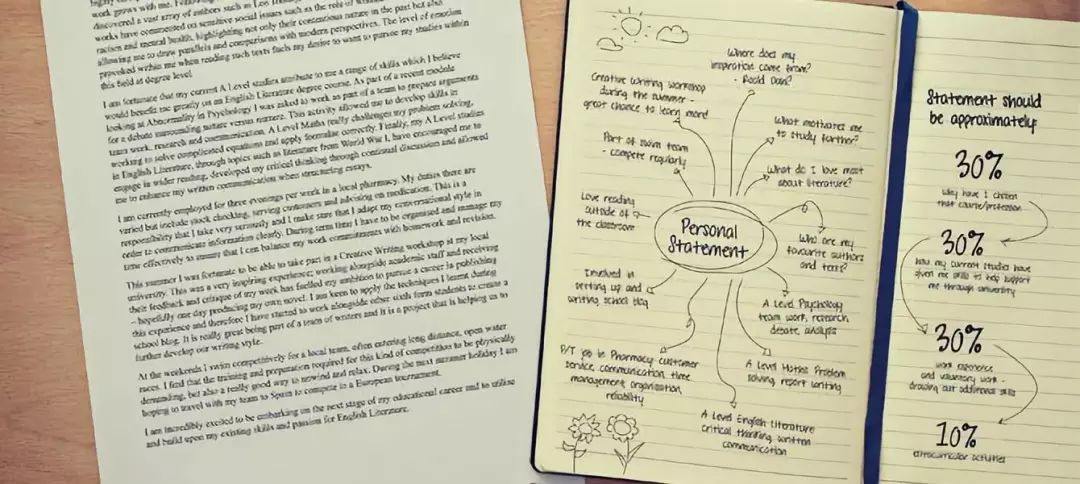 work grows with me. Following
discovered a vast array of authors such as
works have commented on sensitive social issues such as the role of
racism and mental health, highlighting not only their contentious nature in the past but also
allowing me to draw parallels and comparisons with modern perspectives. The level of emotion
provoked within me when reading such texts fuels my desire to want to pursue my studies within
this field at degree level.
I am fortunate that my current A Level studies attribute to me a range of skills which I believe
would benefit me greatly on an English Literature degree course. As part of a recent module
looking at Abnormality in Psychology I was asked to work as part of a team to prepare arguments
for a debate surrounding nature versus nurture. This activity allowed me to develop skills in
team work, research and communication. A Level Maths really challenges my problem solving,
working to solve complicated equations and apply formulae correctly. Finally, my A Level studies
in English Literature, through topics such as literature from World War I, have encouraged me to
engage in wider reading, developed my critical thinking through continual discussion and allowed
me to enhance my written communication when structuring essays.
I am currently employed for three evenings per week in a local pharmacy. My duties there are
varied but include stock checking, serving customers and advising on medication. This is a
responsibility that I take very seriously and I make sure that I adapt my conversational style in
order to communicate information clearly. During term time I have to be organised and manage my
time effectively to ensure that I can balance my work commitments with homework and revision.
This summer I was fortunate to be able to take part in a Creative Writing workshop at my local
university. This was a very inspiring experience; working alongside academic staff and receiving
their feedback and critique of my work has fuelled my ambition to pursue a career in publishing
– hopefully one day producing my own novel. I am keen to apply the techniques I learnt during
this experience and therefore I have started to work alongside other sixth form students to create a
school blog. It is really great being part of a team of writers and it is a project that is helping us to
further develop our writing style.
At the weekends I swim competitively for a local team, often entering long distance, open water
races. I find that the training and preparation required for this kind of competition to be physically
demanding, but also a really good way to unwind and relax. During the next summer holiday I am
hoping to travel with my team to Spain to compete in a European tournament.
I am incredibly excited to be embarking on the next stage of my educational career and to utilise
and build upon my existing skills and passion for English Literature.
Where does my
inspiration come from?
- Roald Dahl?
Creative Writing workshop
during the summer -
great chance to learn more!
What motivates me
to study further?
Part of swim team
- compete regularly
What do I love most
about literature?
Love reading
outside of
the classroom
Personal
Statement
Who are my
favourite authors
and texts?
Involved in
setting up and
writing school blog
A Level Psychology
team work, research
debate, analysis
P/T job in Pharmacy customer
service, communication, time
management, organisation,
reliability
A Level Maths Problem
solving, report writing
A Level English Literature
critical thinking, written
communication
Statement should
be approximately:
30%
Why have I chosen
that course/profession
30%
how my current studies have
given me skills to help support
me through university
30%
work experience
and voluntary work -
drawing out additional skills
10%
extracurricular activities